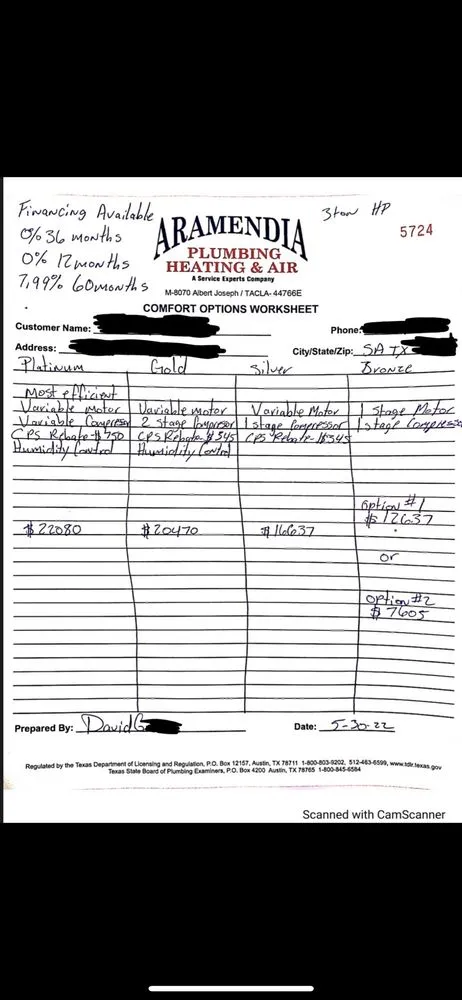 Financing Available
0% 36 months
0% 12 months
7.99% 60 months
ARAMENDIA
PLUMBING
HEATING & AIR
A Service Experts Company
M-8070 Albert Joseph / TACLA- 44766E
3 ton HP
5724
COMFORT OPTIONS WORKSHEET
Customer Name:
Phone:
Address:
City/State/Zip: SA TX
Platinum Gold Silver Bronze
Most efficient
Variable motor Variable motor Variable Motor 1 Stage Motor
Variable Compressor 2 Stage Compressor 1 stage Compressor 1 stage Compressor
CPS Rebate-$750 CPS Rebate-$345 CPS Rebate-$345
Humidity Control Humidity Control
option #1
$ 12637
$ 22080 $ 20470 $ 16637
or
option #2
$ 7605
Prepared By: David G
Date: 5-30-22
Regulated by the Texas Department of Licensing and Regulation, P.O. Box 12157, Austin, TX 78711 1-800-803-9202, 512-463-6599, www.tdlr.texas.gov
Texas State Board of Plumbing Examiners, P.O. Box 4200 Austin, TX 78765 1-800-845-6584
Scanned with CamScanner